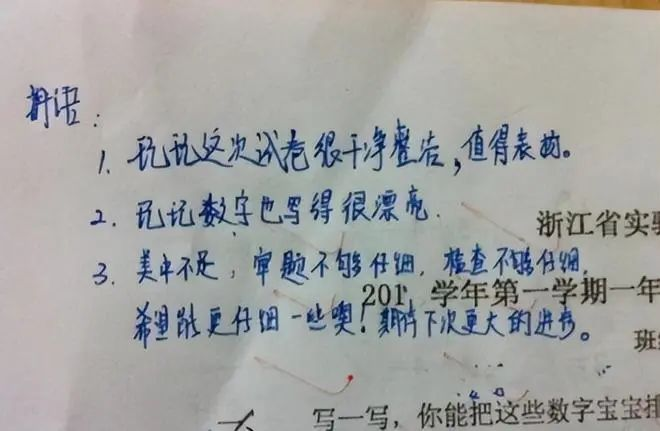 语:
1. 这次试卷很干净整洁,值得表扬。
2. 数字也写得很漂亮.
浙江省实
3. 美中不足,审题不够仔细,检查不够仔细,
201 学年第一学期一年
希望能更仔细一些噢!期待下次更大的进步。
班
写一写,你能把这些数字宝宝排